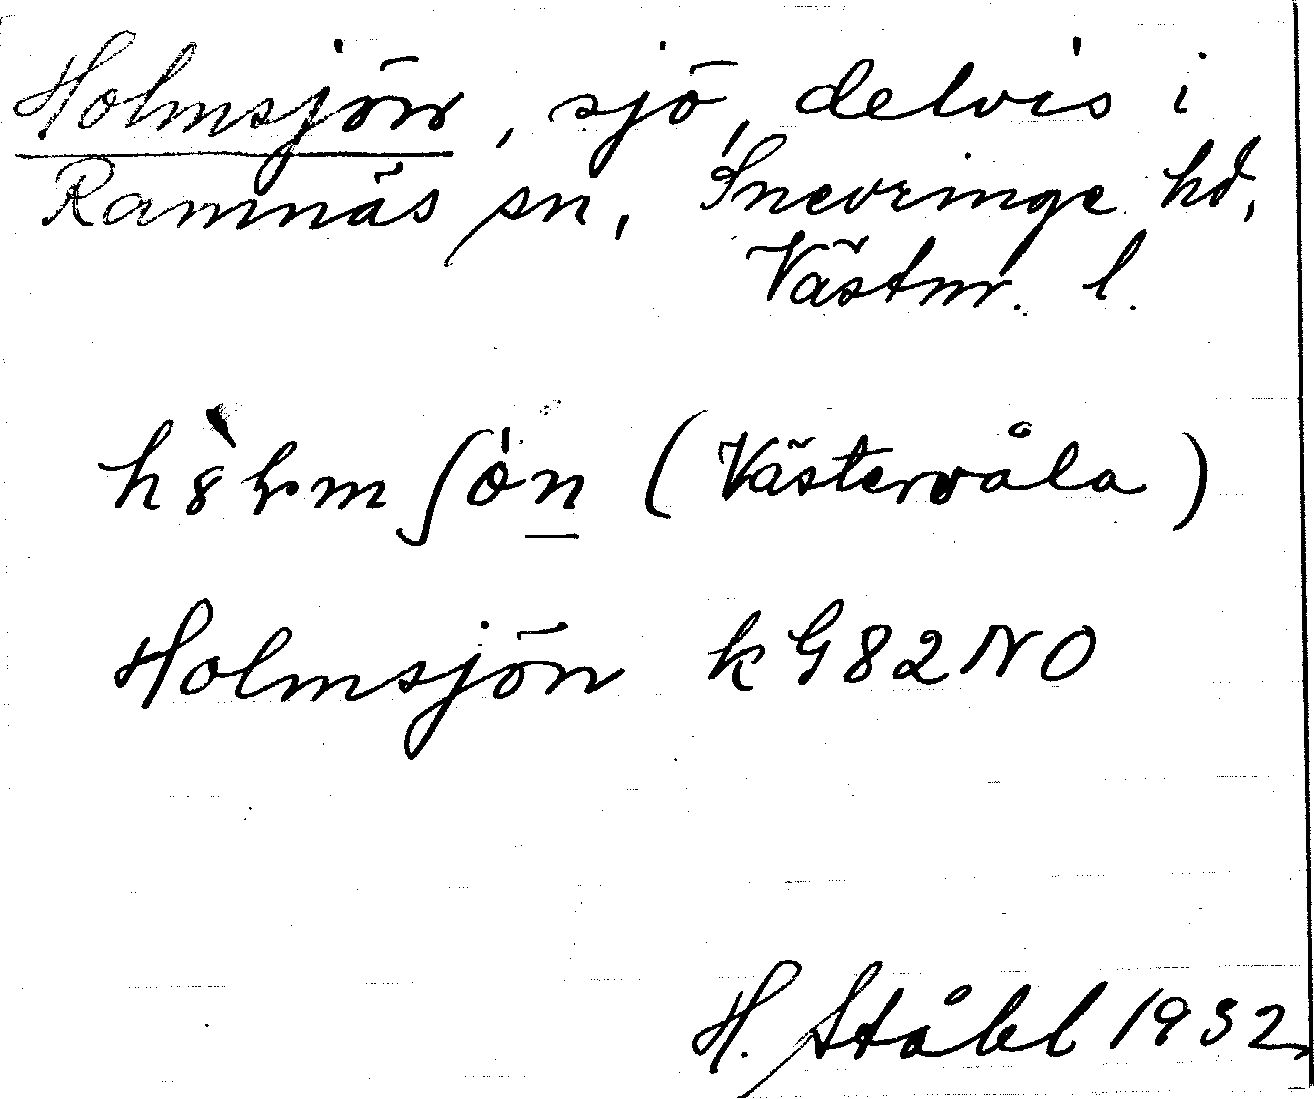 Holmsjön, sjö, delvis i
Ramnäs sn, Snevringe hd,
Västm. l.
(Västervåla)
Holmsjön kG82NO
H. Ståhl 1932